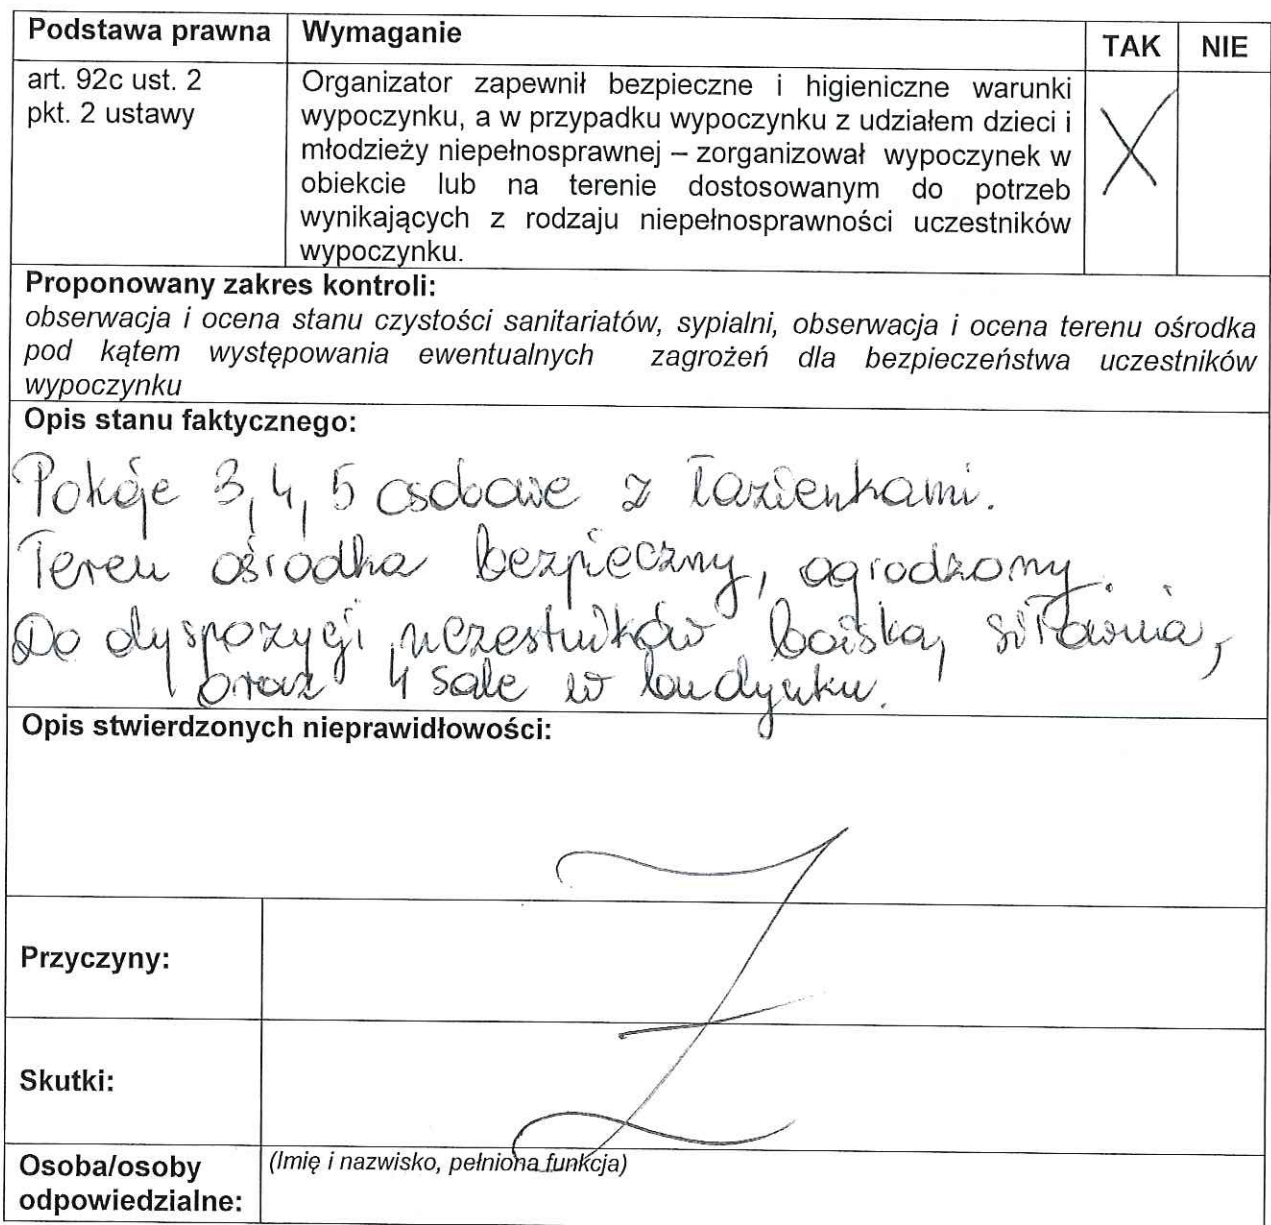 Podstawa prawna Wymaganie TAK NIE
art. 92c ust. 2
pkt. 2 ustawy
Organizator zapewnił bezpieczne i higieniczne warunki
wypoczynku, a w przypadku wypoczynku z udziałem dzieci i
młodzieży niepełnosprawnej – zorganizował wypoczynek w
obiekcie lub na terenie dostosowanym do potrzeb
wynikających z rodzaju niepełnosprawności uczestników
wypoczynku.
X
Proponowany zakres kontroli:
obserwacja i ocena stanu czystości sanitariatów, sypialni, obserwacja i ocena terenu ośrodka
pod kątem występowania ewentualnych zagrożeń dla bezpieczeństwa uczestników
wypoczynku
Opis stanu faktycznego:
Pokoje 3, 4, 5 osobowe z łazienkami.
Teren ośrodka bezpieczny, ogrodzony.
Do dyspozycji uczestników boiska, siłownia,
oraz 4 sale w budynku.
Opis stwierdzonych nieprawidłowości:
Przyczyny:
Skutki:
Osoba/osoby
odpowiedzialne:
(Imię i nazwisko, pełniona funkcja)